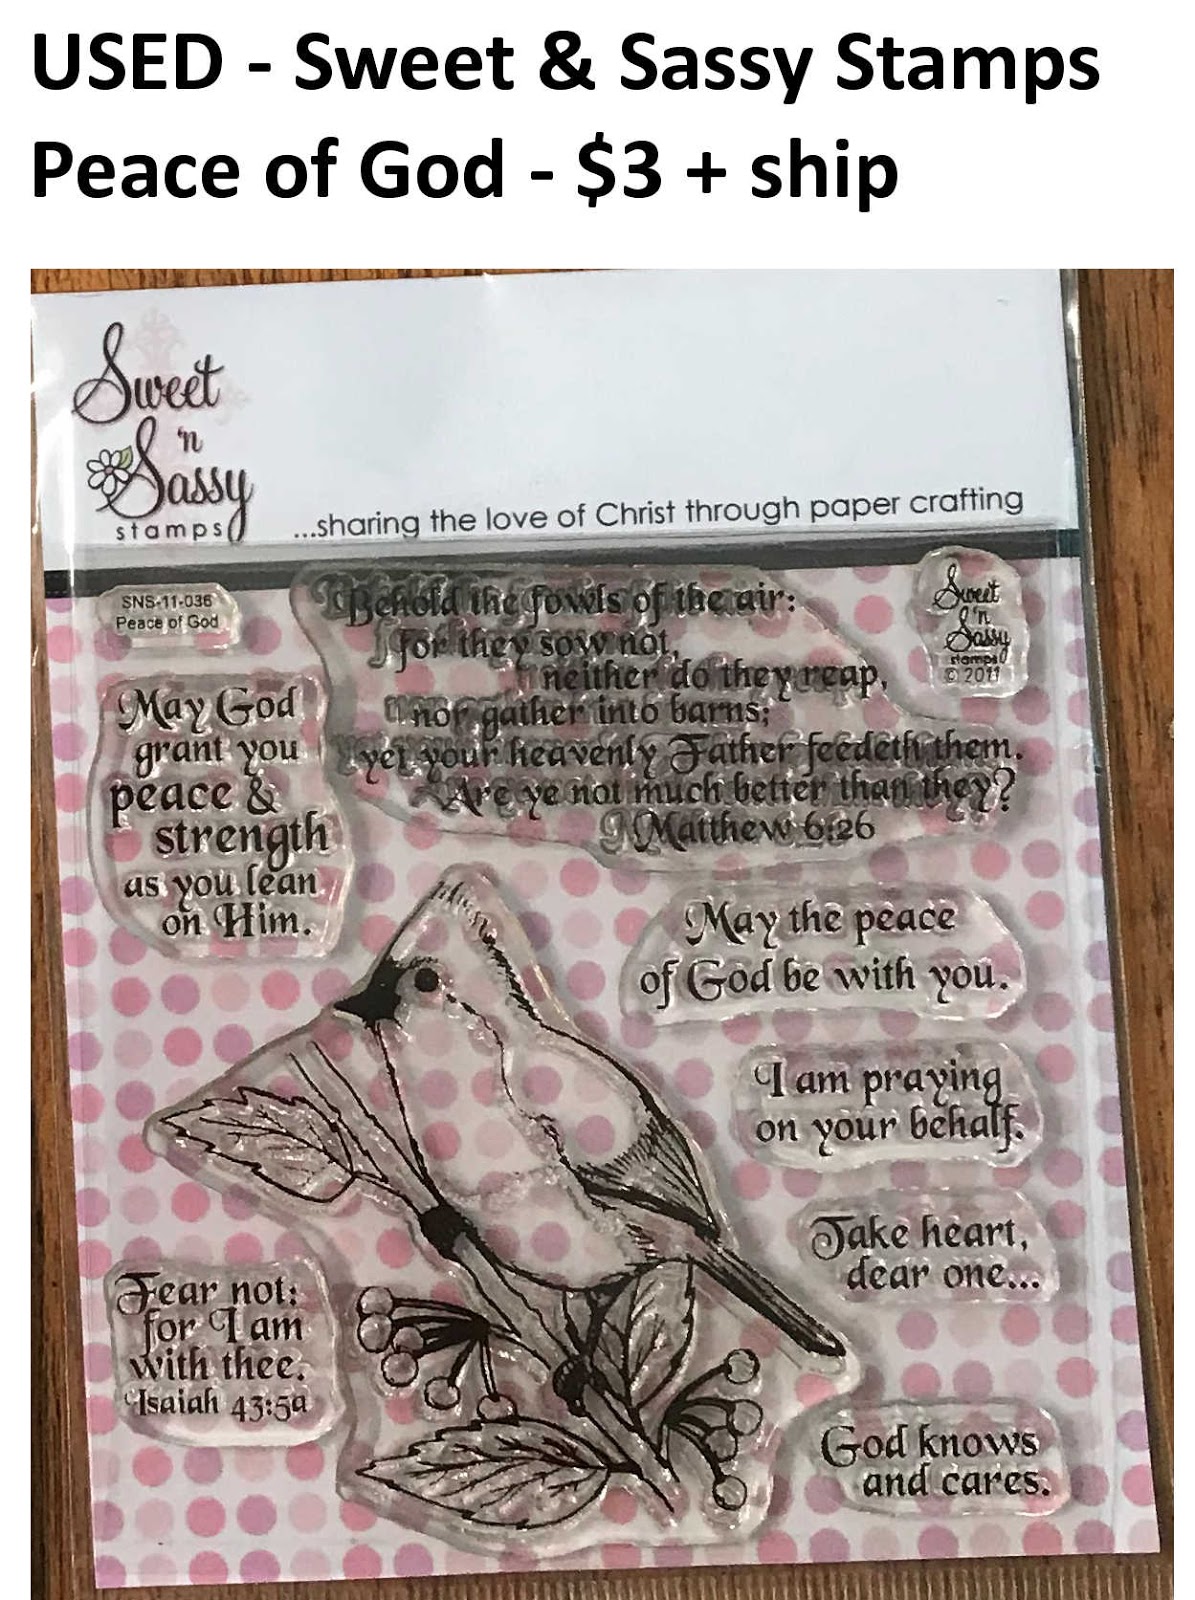 USED - Sweet & Sassy Stamps
Peace of God - $3 + ship
Sweet
'n
Sassy
stamps
...sharing the love of Christ through paper crafting
SNS-11-036
Peace of God
Behold the fowls of the air:
for they sow not,
neither do they reap,
nor gather into barns;
yet your heavenly Father feedeth them.
Are ye not much better than they?
Matthew 6:26
Sweet
'n
Sassy
stamps
© 2011
May God
grant you
peace &
strength
as you lean
on Him.
May the peace
of God be with you.
I am praying
on your behalf.
Take heart,
dear one...
Fear not:
for I am
with thee.
Isaiah 43:5a
God knows
and cares.